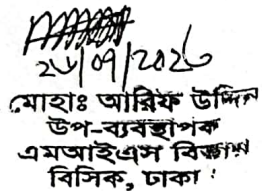 ২৬/০৭/২০২৬
মোহাঃ আরিফ উদ্দিন
উপ-ব্যবস্থাপক
এমআইএস বিভাগ
বিসিক, ঢাকা।